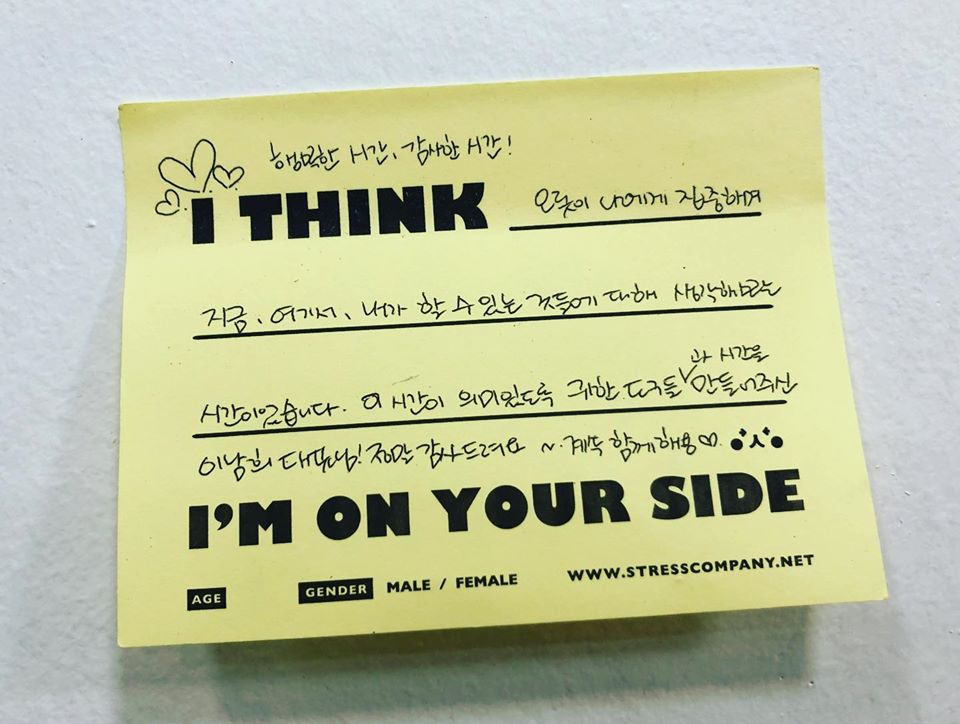 행복한 시간, 감사한 시간!
I THINK 오롯이 나에게 집중하며
지금, 여기서, 내가 할 수 있는 것들에 대해 생각해보는
과 시간을
시간이었습니다. 이 시간이 의미있도록 귀한 도구들 만들어주신
이남희 대표님! 정말 감사드려요 ~. 계속 함께해용♡.
I'M ON YOUR SIDE
AGE GENDER MALE / FEMALE WWW.STRESSCOMPANY.NET